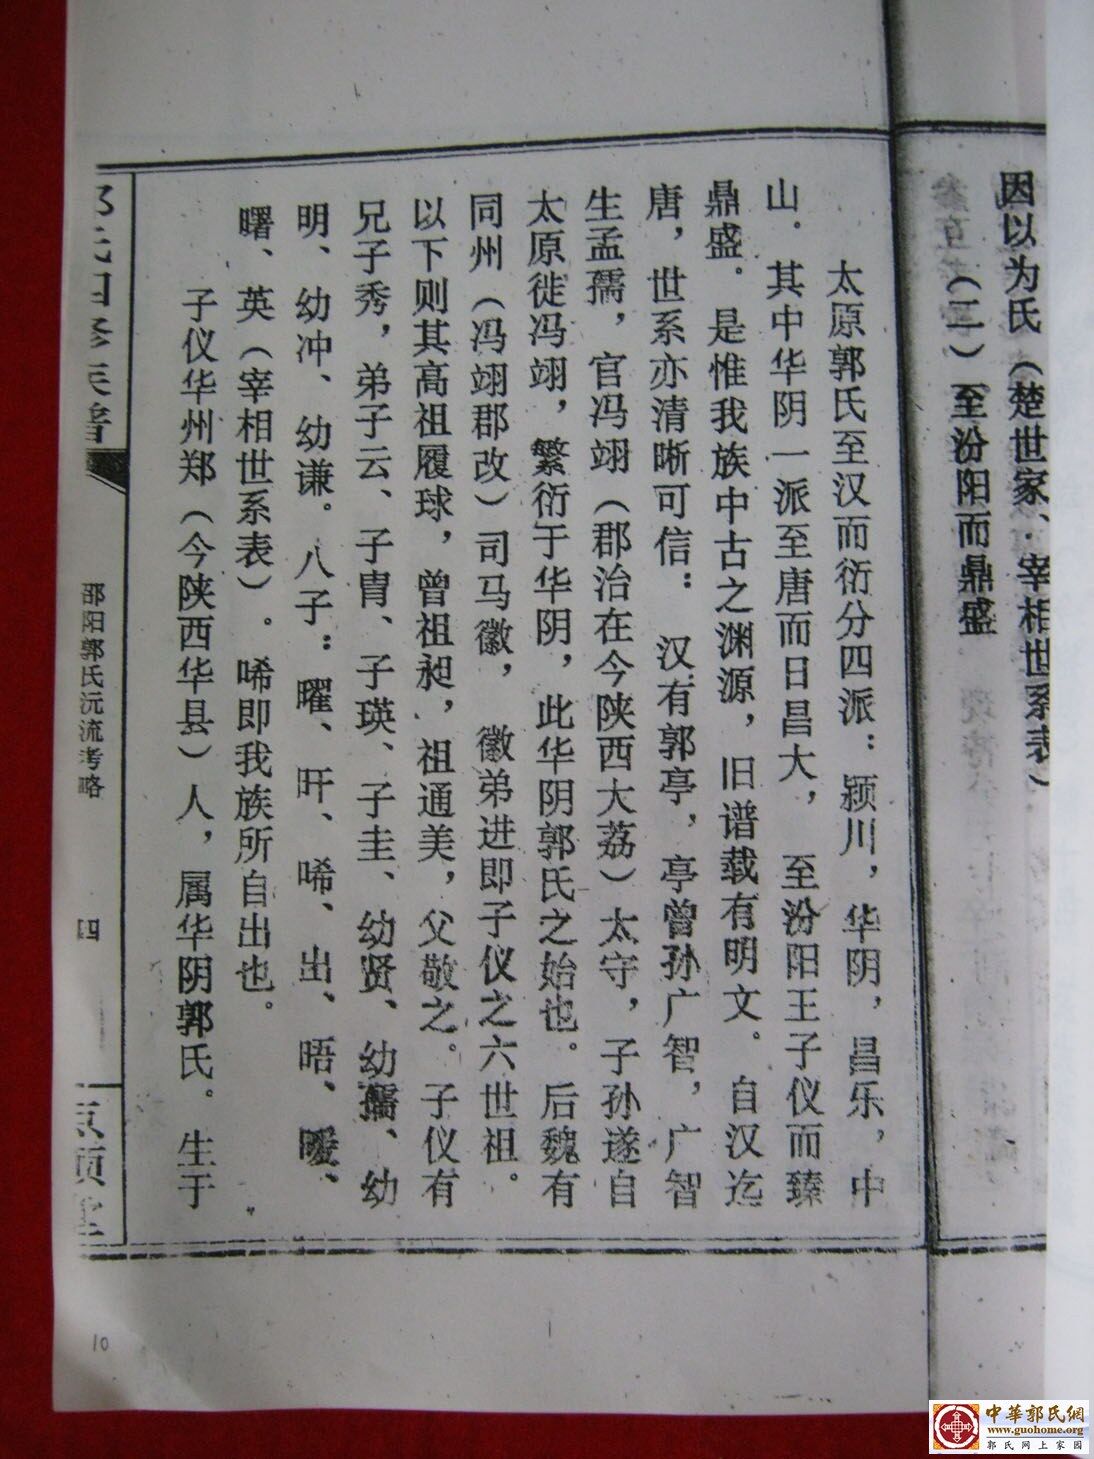 因以为氏（楚世家、宰相世系表）
（二）至汾阳而鼎盛
太原郭氏至汉而衍分四派：颍川，华阴，昌乐，中
山．其中华阴一派至唐而日昌大，至汾阳王子仪而臻
鼎盛．是惟我族中古之渊源，旧谱载有明文。自汉迄
唐，世系亦清晰可信：汉有郭亭，亭曾孙广智，广智
生孟儒，官冯翊（郡治在今陕西大荔）太守，子孙遂自
太原徙冯翊，繁衍于华阴，此华阴郭氏之始也。后魏有
同州（冯翊郡改）司马徽，徽弟进即子仪之六世祖。
以下则其高祖履球，曾祖昶，祖通美，父敬之。子仪有
兄子秀，弟子云、子胄、子瑛、子圭、幼贤、幼孺、幼
明、幼冲、幼谦。八子：曜、旰、唏、出、晤、暧、
曙、英（宰相世系表）。唏即我族所自出也。
子仪华州郑（今陕西华县）人，属华阴郭氏。生于
郭氏四修族谱
邵阳郭氏沅流考略
四
10
中華郭氏網
www.guohome.org
郭氏网上家园